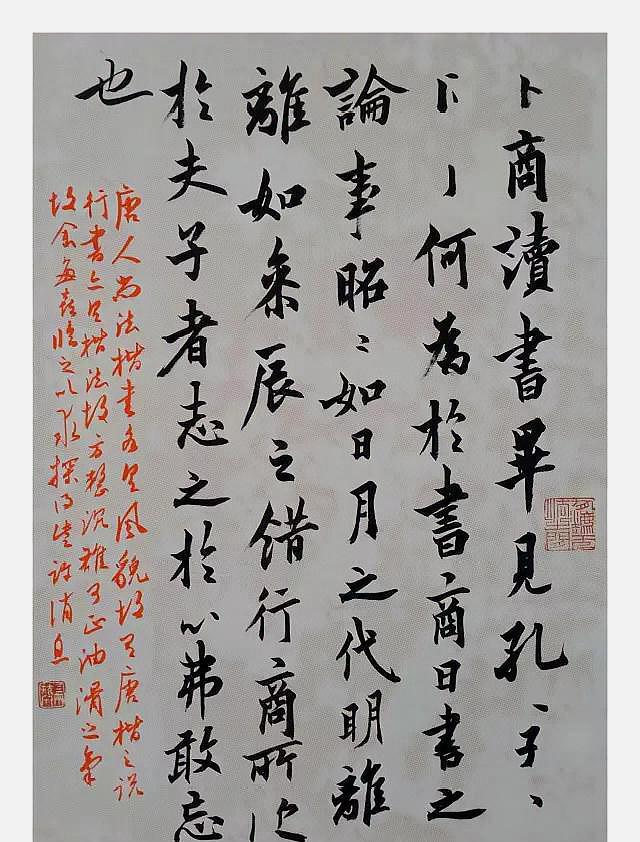 卜商讀書畢見孔〻子〻
何為於書商曰書之
論事昭〻如日月之代明離
離如參辰之錯行商所
於夫子者志之於心弗敢忘
也
唐人尚法楷書各具風貌故有唐楷之說
行書亦具楷法故方整沉雄可正油滑之氣
故余每喜臨之以求探得些許消息